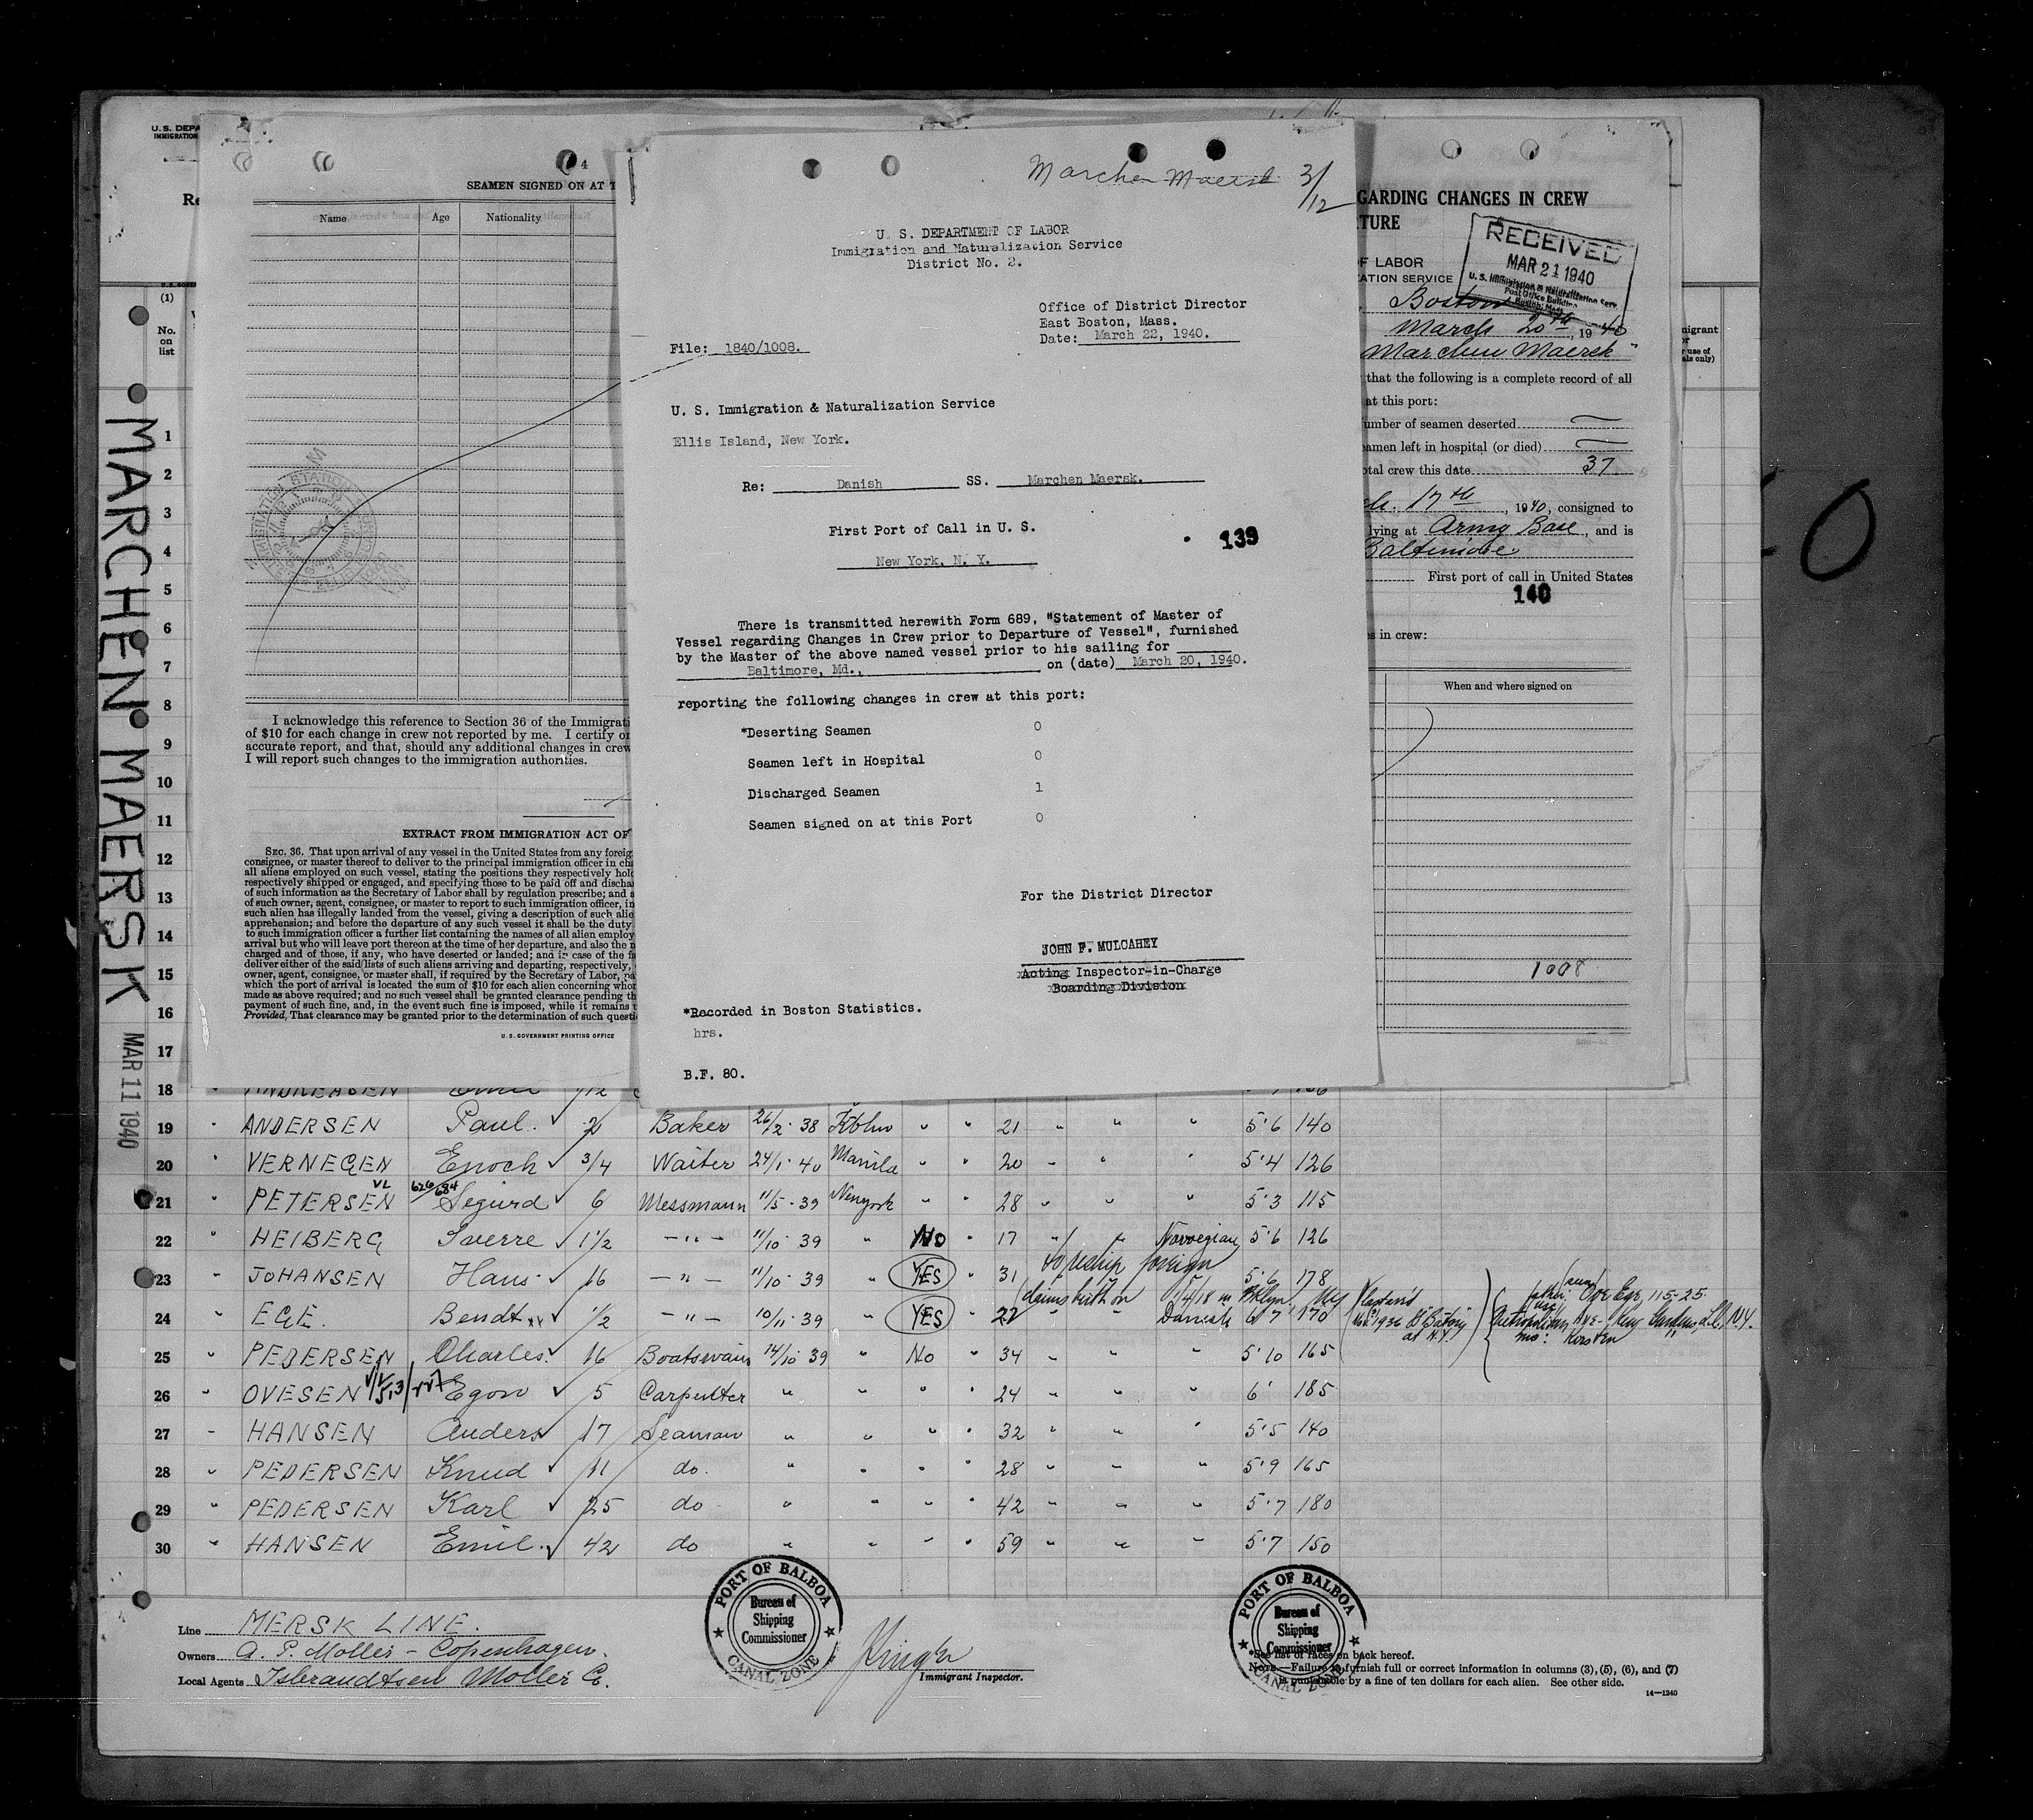 U.S. DEPA
IMMIGRATION
Re
(1)
No.
on
list
MARCHEN MAERSK
MAR 11 1940
4
SEAMEN SIGNED ON AT T
Name Age Nationality
I acknowledge this reference to Section 36 of the Immigrati
of $10 for each change in crew not reported by me. I certify
accurate report, and that, should any additional changes in crew
I will report such changes to the immigration authorities.
EXTRACT FROM IMMIGRATION ACT OF
SEC. 36. That upon arrival of any vessel in the United States from any foreig
consignee, or master thereof to deliver to the principal immigration officer in ch
all aliens employed on such vessel, stating the positions they respectively hold
respectively shipped or engaged, and specifying those to be paid off and discha
of such information as the Secretary of Labor shall by regulation prescribe; and a
of such owner, agent, consignee, or master to report to such immigration officer, in
such alien has illegally landed from the vessel, giving a description of such alie
apprehension; and before the departure of any such vessel it shall be the duty
to such immigration officer a further list containing the names of all alien employ
arrival but who will leave port thereon at the time of her departure, and also the n
charged and of those, if any, who have deserted or landed; and in case of the fa
deliver either of the said lists of such aliens arriving and departing, respectively,
owner, agent, consignee, or master shall, if required by the Secretary of Labor, pa
which the port of arrival is located the sum of $10 for each alien concerning whom
made as above required; and no such vessel shall be granted clearance pending th
payment of such fine, and, in the event such fine is imposed, while it remains
Provided, That clearance may be granted prior to the determination of such questi
U.S. GOVERNMENT PRINTING OFFICE
Marchen Maersk 3/12
U. S. DEPARTMENT OF LABOR
Immigration and Naturalization Service
District No. 2.
Office of District Director
East Boston, Mass.
Date: March 22, 1940.
File: 1840/1008.
U. S. Immigration & Naturalization Service
Ellis Island, New York.
Re: Danish SS. Marchen Maersk.
First Port of Call in U. S.
139
New York, N. Y.
There is transmitted herewith Form 689, "Statement of Master of
Vessel regarding Changes in Crew prior to Departure of Vessel", furnished
by the Master of the above named vessel prior to his sailing for
Baltimore, Md., on (date) March 20, 1940.
reporting the following changes in crew at this port:
*Deserting Seamen 0
Seamen left in Hospital 0
Discharged Seamen 1
Seamen signed on at this Port 0
For the District Director
JOHN F. MULCAHEY
Acting Inspector-in-Charge
Boarding Division
*Recorded in Boston Statistics.
hrs.
B.F. 80.
GARDING CHANGES IN CREW
TURE
RECEIVED
MAR 21 1940
U. S. Immigration & Naturalization Serv.
Post Office Building
Boston, Mass.
F LABOR
ATION SERVICE
Boston
March 20th, 1940
Marchen Maersk"
that the following is a complete record of all
at this port:
umber of seamen deserted
eamen left in hospital (or died)
otal crew this date 37
ch. 17th, 1940, consigned to
lying at Army Base, and is
Baltimore
First port of call in United States
140
s in crew:
When and where signed on
1008
migrant
or
r use of
als only)
0
1
2
3
4
5
6
7
8
9
10
11
12
13
14
15
16
17
18 ANDREASEN
19 " ANDERSEN Paul 2 Baker 26/2 - 38 Kbhn " " 21 " " " 5'6 140
20 " VERNEGEN Enoch 3/4 Waiter 24/1 - 40 Manila " " 20 " " " 5'4 126
21 " PETERSEN VL 626/684 Segurd 6 Messmann 11/5 - 39 Newyork " " 28 " " " 5'3 115
22 " HEIBERG Sverre 1 1/2 - " - 11/10 - 39 " No " 17 " " Norwegian 5'6 126
to reship foreign
23 " JOHANSEN Hans 16 - " - 11/10 - 39 " YES " 31 5'6 178
claims birth on
24 " EGE Bendt 1/2 - " - 10/11 - 39 " YES " 22 Danish 6'7 170
father: Ove Ege, 115-25
Metropolitan Ave - Kew Gardens, L.I., N.Y.
mo: Kirsten
25 " PEDERSEN Charles 16 Boatswain 14/10 39 " No " 34 " " " 5'10 165
26 " OVESEN Egon 5 Carpenter " " " " 24 " " " 6' 185
27 " HANSEN Anders 17 Seaman " " " " 32 " " " 5'5 140
28 " PEDERSEN Knud 11 do. " " " " 28 " " " 5'9 165
29 " PEDERSEN Karl 25 do " " " " 42 " " " 5'7 180
30 " HANSEN Emil 42 do " " " " 59 " " " 5'7 150
Line MERSK LINE.
Owners A. P. Moller - Copenhagen.
Local Agents Isbrandtsen Moller C.
PORT OF BALBOA
Bureau of
Shipping
Commissioner
CANAL ZONE
Immigrant Inspector.
PORT OF BALBOA
Bureau of
Shipping
Commissioner
CANAL ZONE
*See list of races on back hereof.
NOTE.—Failure to furnish full or correct information in columns (3), (5), (6), and (7)
is punishable by a fine of ten dollars for each alien. See other side.
14—1240